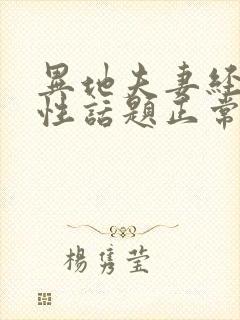 異地夫妻经
性話題正常
楊隽莹